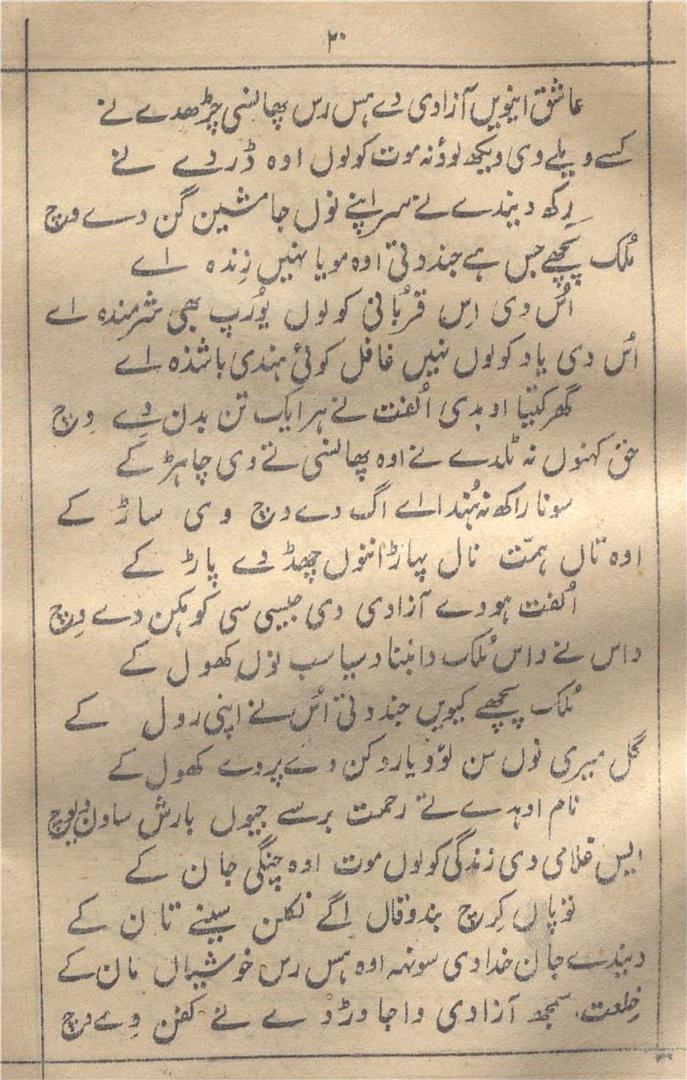 ۲۰
عاشق اینویں آزادی دے ہس رس پھانسی چڑھدے نے
کسے ویلے وی ویکھ لوؤ نہ موت کولوں اوہ ڈردے نے
رکھ دیندے نے سر اپنے نوں جا مشین گن دے وچ
ملک پچھے جس ہے جند دتی اوہ مویا نہیں زندہ اے
اُس دی اس قربانی کولوں یورپ بھی شرمندہ اے
اُس دی یاد کولوں نہیں غافل کوئی ہندی باشندہ اے
گھر کیتا اوہدی اُلفت نے ہر ایک تن بدن دے وچ
حق کہنوں نہ ٹلدے نے اوہ پھانسی تے وی چاہڑ کے
سونا راکھ نہ ہُندا اے اگ دے وچ وی ساڑ کے
اوہ تاں ہمت نال پہاڑ انوں چھڈ دے پاڑ کے
اُلفت ہووے آزادی دی جیسی سی کوہکن دے وچ
داس نے داس مُلک دا بنا دسیا سب نوں کھول کے
مُلک پچھے کیویں جند دتی اُس نے اپنی رول کے
گل میری نوں سن لؤو یارو کن دے پردے کھول کے
نام اوہدے تے رحمت برسے جیوں بارش ساون دیوچ
ایس غلامی دی زندگی کولوں موت اوہ چنگی جان کے
توپاں کرچ بندوقاں اگے نکلن سینے تان کے
دیندے جان خدا دی سونہہ اوہ ہس رس خوشیاں مان کے
خلعت سمجھ آزادی دا جا وڑدے نے کفن دے وچ